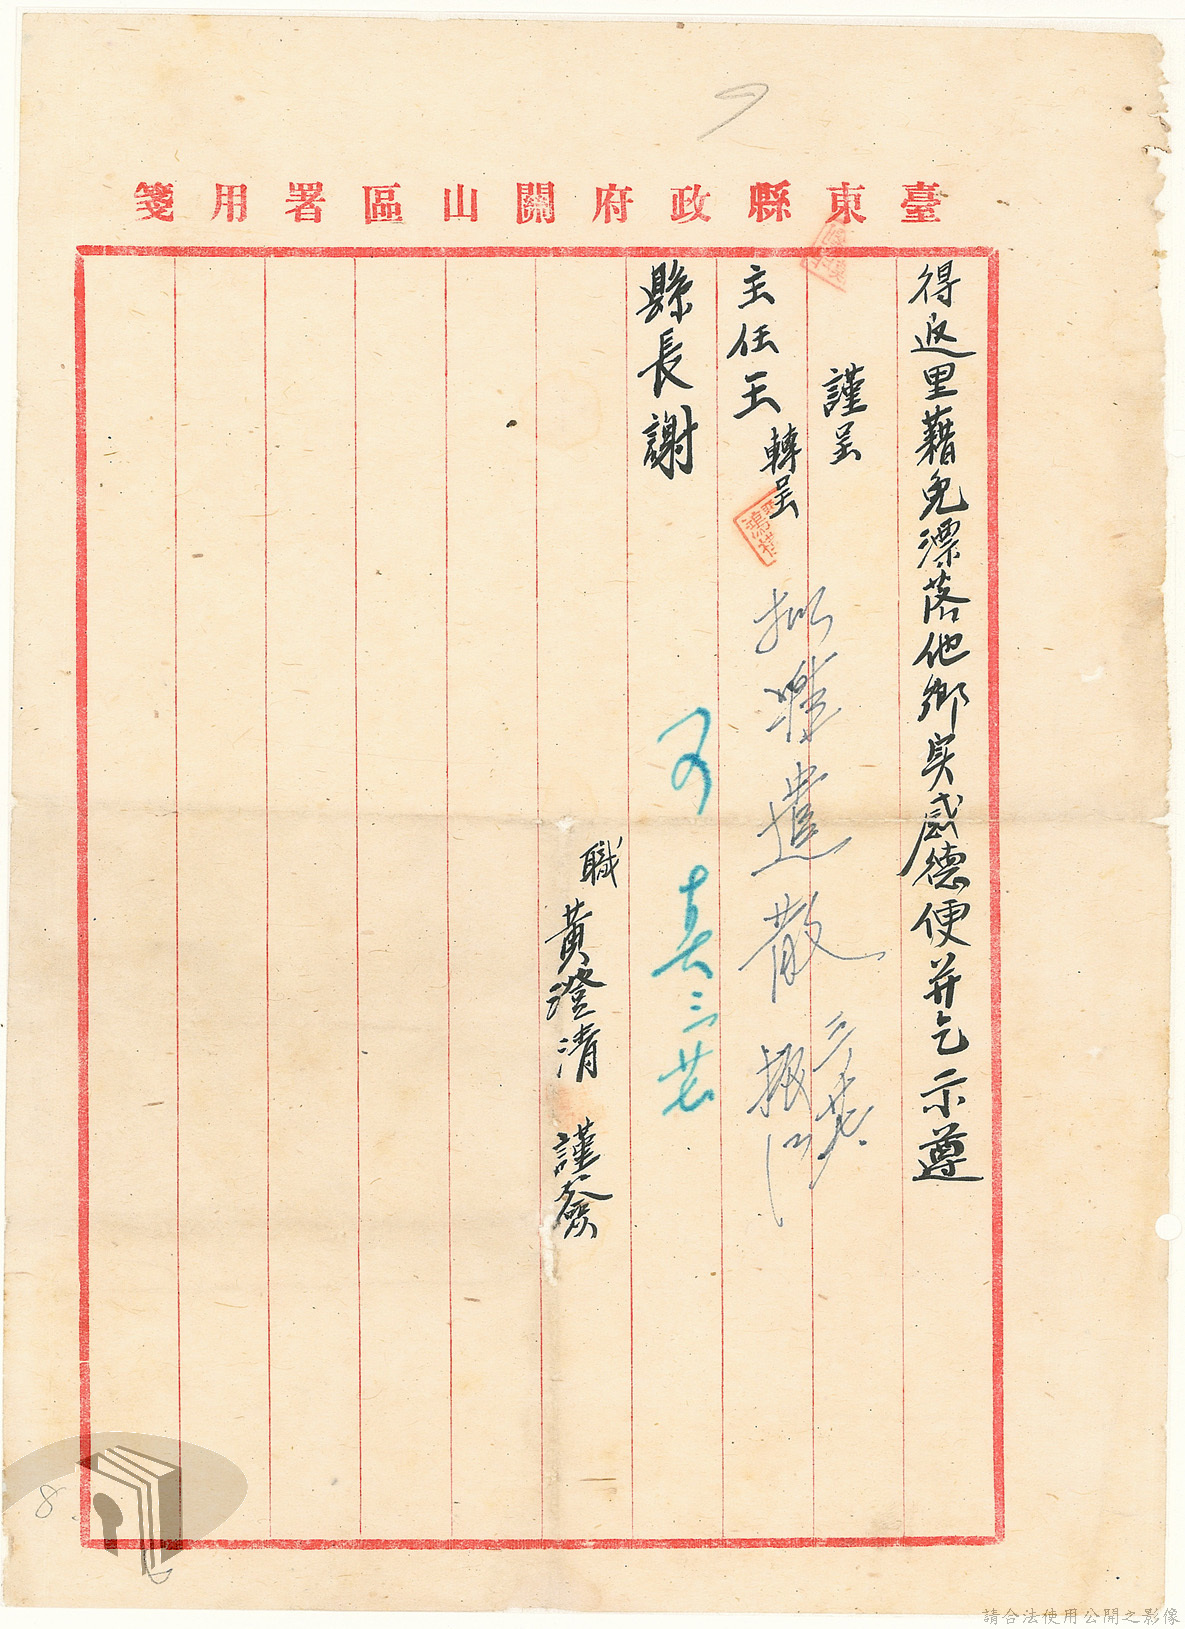 臺東縣政府關山區署用箋
得返里藉免漂落他鄉実感德便并乞示遵
謹呈
主任王 轉呈
縣長謝
擬准遣散
三、廿
可 真 三 廿
職 黃澄清 謹簽
8
請合法使用公開之影像